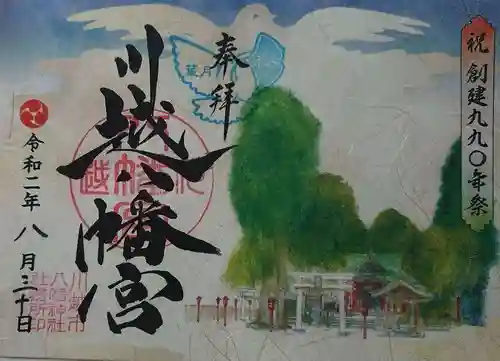 祝 創建九九〇年祭
奉拝
葉月
川越八幡宮
令和二年八月三十日